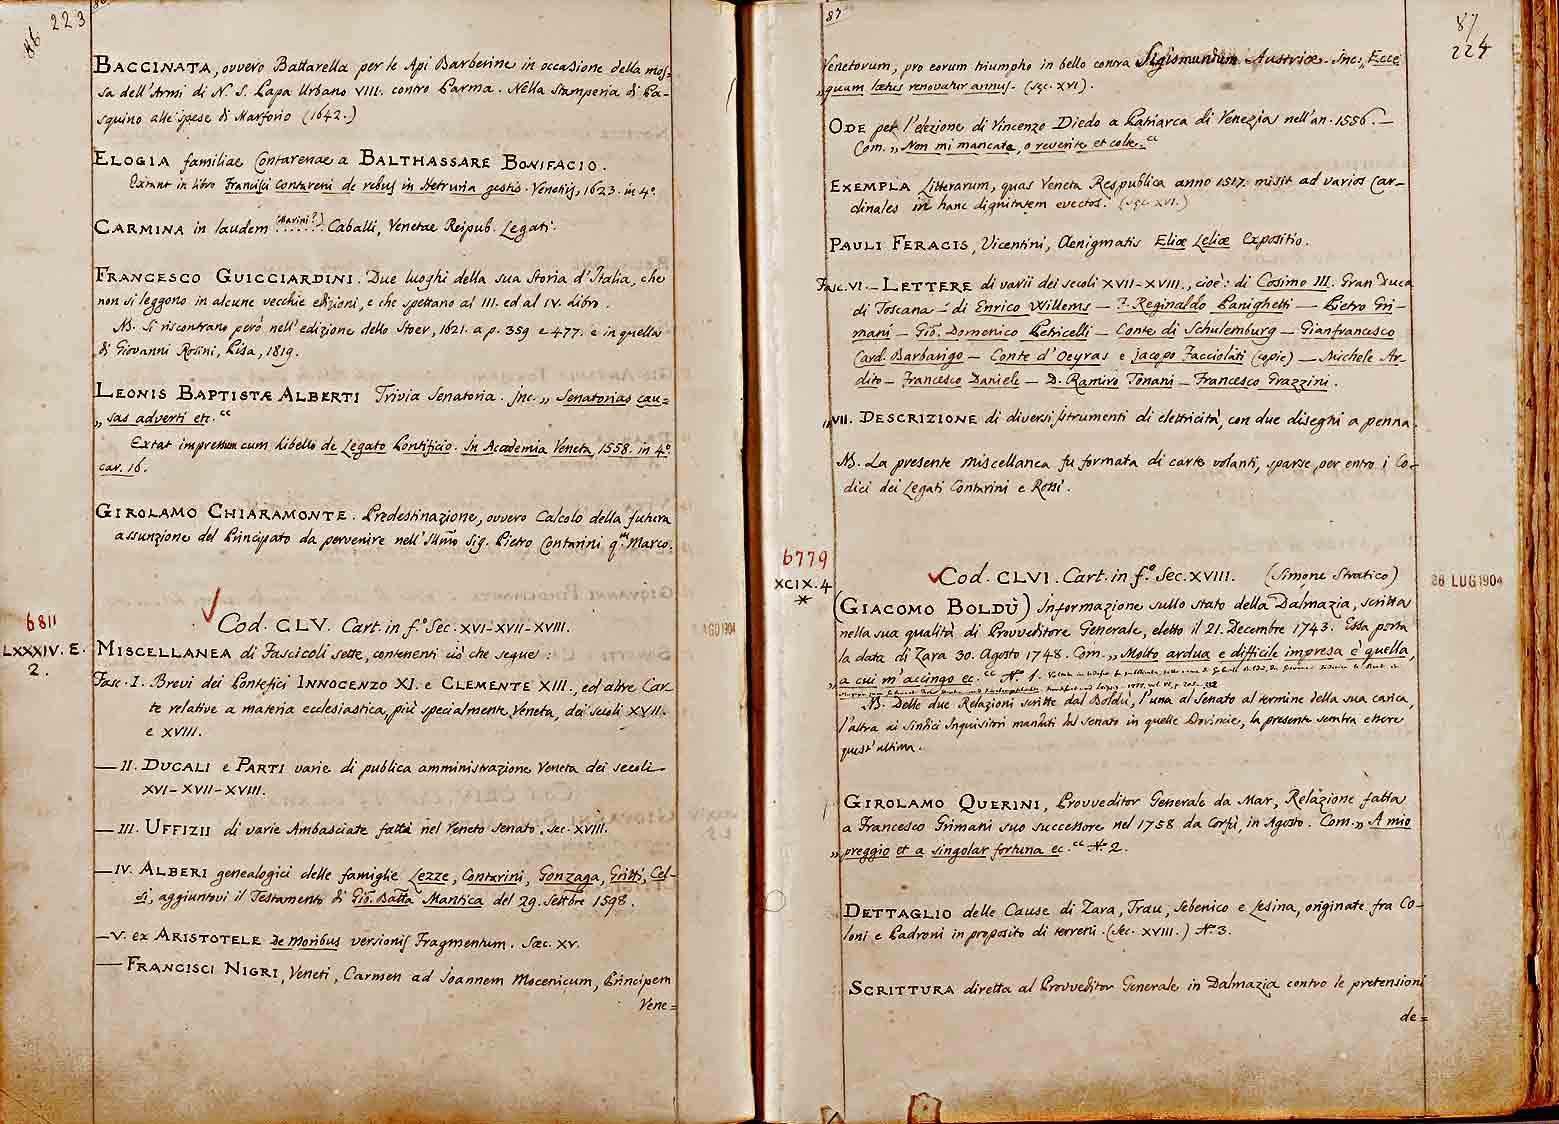 86 223
BACCINATA, ovvero Battarella per le Api Barberine in occasione della mos=
sa dell'Armi di N. S. Papa Urbano VIII. contro Parma. Nella Stamperia di Pa-
squino alle spese di Marforio (1642.)
ELOGIA familiae Contarenae a BALTHASSARE BONIFACIO.
Extant in libro Francisci Contareni de rebus in Hetruria gestis. Venetijs, 1623. in 4º.
CARMINA in laudem (Marini?) Caballi, Venetae Reipub. Legati.
FRANCESCO GUICCIARDINI. Due luoghi della sua Storia d'Italia, che
non si leggono in alcune vecchie edizioni, e che spettano al III. ed al IV. Libro.
NB. Si riscontrano però nell'edizione dello Stoer, 1621. a p. 359 e 477. e in quella
di Giovanni Rosini, Pisa, 1819.
LEONIS BAPTISTÆ ALBERTI Trivia Senatoria. Inc. „ Senatorias cau=
„ sas adverti etc. “
Extat impressum cum libello de Legato Pontificio. In Academia Veneta, 1558. in 4º.
car. 16.
GIROLAMO CHIARAMONTE. Predestinazione, ovvero Calcolo della futura
assunzione del Principato da pervenire nell'Illmo Sig. Pietro Contarini qm Marco.
6811
LXXXIV. E.
2.
Cod. CLV. Cart. in fº. Sec. XVI-XVII-XVIII.
AGO 1904
MISCELLANEA di Fascicoli sette, contenenti ciò che segue:
Fasc. I. Brevi dei Pontefici INNOCENZO XI. e CLEMENTE XIII., ed altre Car-
te relative a materia ecclesiastica, più specialmente Veneta, dei secoli XVII.
e XVIII.
— II. DUCALI e PARTI varie di publica amministrazione Veneta dei secoli
XVI-XVII-XVIII.
— III. UFFIZII di varie Ambasciate fatti nel Veneto Senato. sec. XVIII.
— IV. ALBERI genealogici delle famiglie Lezze, Contarini, Gonzaga, Gritti, Cel-
si, aggiuntovi il Testamento di Gio. Batta Mantica del 29. Settbre 1598.
— V. ex ARISTOTELE De Moribus versionis Fragmentum. Sæc. XV.
— FRANCISCI NIGRI, Veneti, Carmen ad Joannem Mocenicum, Principem
Vene=
87
87
224
Venetorum, pro eorum triumpho in bello contra Sigismundum Austriæ. Inc. „ Ecce
„ quam lætus renovatur annus. (sec. XVI).
ODE per l'elezione di Vincenzo Diedo a Patriarca di Venezia nell'an. 1556. —
Com. „ Non mi mancate, o reverite et colte. “
EXEMPLA Litterarum, quas Veneta Respublica anno 1517. misit ad varios Car-
dinales in hanc dignitatem evectos. (sec. XVI.)
PAULI FERACIS, Vicentini, Aenigmatis Eliæ Leliæ Expositio.
Fasc. VI. — LETTERE di varii dei secoli XVII-XVIII., cioè: di Cosimo III. Gran Duca
di Toscana — di Enrico Willems — F. Reginaldo Panighetti — Pietro Gri-
mani — Gio. Domenico Petricelli — Conte di Schulemburg — Gianfrancesco
Card. Barbarigo — Conte d'Oeyras e Jacopo Facciolati (copie) — Michele Ar-
dito — Francesco Daniele — D. Ramiro Tonani — Francesco Grazzini.
„ VII. DESCRIZIONE di diversi strumenti di elettricità, con due disegni a penna.
NB. La presente miscellanea fu formata di carte volanti, sparse per entro i Co-
dici dei Legati Contarini e Rossi.
6779
XCIX. 4
*
Cod. CLVI. Cart. in fº. Sec. XVIII. (Simone Stratico)
26 LUG 1904
(GIACOMO BOLDÙ) Informazione sullo stato della Dalmazia, scritta
nella sua qualità di Provveditore Generale, eletto il 21. Decembre 1743. Essa porta
la data di Zara 30. Agosto 1748. Com. „ Molto ardua e difficile impresa è quella,
„ a cui m'accingo ec. “ Nº 1.
NB. Delle due Relazioni scritte dal Boldù, l'una al Senato al termine della sua carica,
l'altra ai Sindici Inquisitori mandati dal Senato in quelle Provincie, la presente sembra essere
quest'ultima.
GIROLAMO QUERINI, Provveditor Generale da Mar, Relazione fatta
a Francesco Grimani suo successore nel 1758 da Corfù, in Agosto. Com. „ A mio
„ preggio et a singolar fortuna ec. “ Nº. 2.
DETTAGLIO delle Cause di Zara, Trau, Sebenico e Lesina, originate fra Co-
loni e Padroni in proposito di terreni. (Sec. XVIII.) Nº. 3.
SCRITTURA diretta al Provveditor Generale in Dalmazia contro le pretensioni
de=